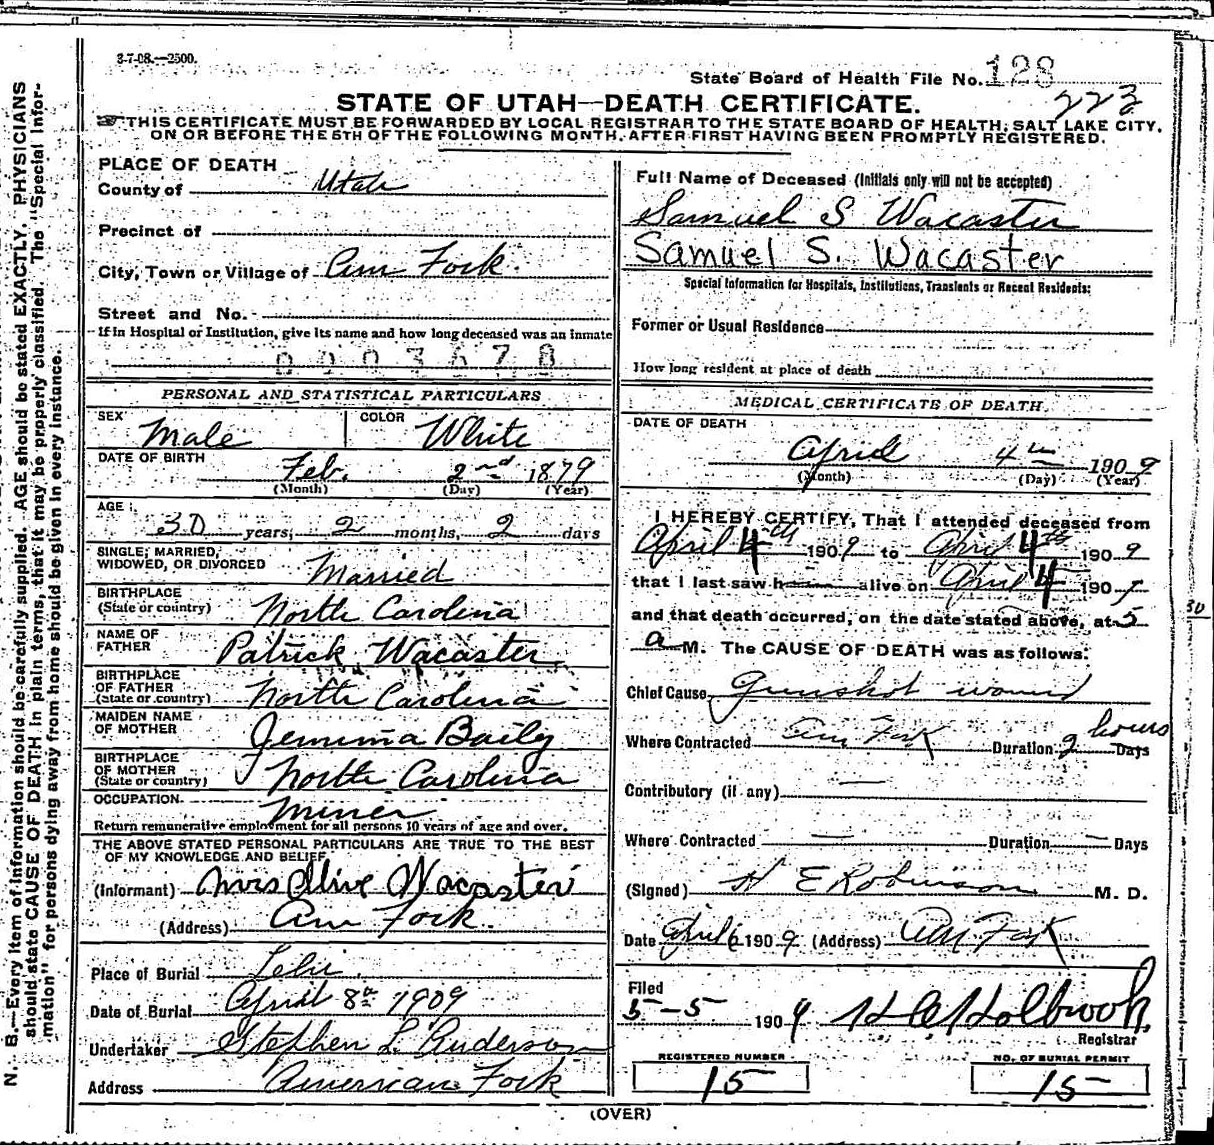 3-7-08.—2500.
State Board of Health File No. 128
223
STATE OF UTAH—DEATH CERTIFICATE.
THIS CERTIFICATE MUST BE FORWARDED BY LOCAL REGISTRAR TO THE STATE BOARD OF HEALTH, SALT LAKE CITY,
ON OR BEFORE THE 5TH OF THE FOLLOWING MONTH, AFTER FIRST HAVING BEEN PROMPTLY REGISTERED.
N. B.—Every item of information should be carefully supplied. AGE should be stated EXACTLY. PHYSICIANS
should state CAUSE OF DEATH in plain terms, that it may be properly classified. The "Special Infor-
mation" for persons dying away from home should be given in every instance.
PLACE OF DEATH
County of Utah
Precinct of
City, Town or Village of Am Fork.
Street and No.
If in Hospital or Institution, give its name and how long deceased was an inmate
0003678
PERSONAL AND STATISTICAL PARTICULARS
SEX Male COLOR White
DATE OF BIRTH Feb. 2nd 1879
(Month) (Day) (Year)
AGE 30 years, 2 months, 2 days
SINGLE, MARRIED,
WIDOWED, OR DIVORCED Married
BIRTHPLACE
(State or country) North Carolina
NAME OF
FATHER Patrick Wacaster
BIRTHPLACE
OF FATHER
(State or country) North Carolina
MAIDEN NAME
OF MOTHER Jemima Baily
BIRTHPLACE
OF MOTHER
(State or country) North Carolina
OCCUPATION Miner
Return remunerative employment for all persons 10 years of age and over.
THE ABOVE STATED PERSONAL PARTICULARS ARE TRUE TO THE BEST
OF MY KNOWLEDGE AND BELIEF
(Informant) Mrs Olive Wacaster
(Address) Am Fork.
Place of Burial Lehi
Date of Burial April 8th 1909
Undertaker Stephen L. Anderson
Address American Fork
Full Name of Deceased (Initials only will not be accepted)
Samuel S Wacaster
Samuel S. Wacaster
Special Information for Hospitals, Institutions, Transients or Recent Residents:
Former or Usual Residence
How long resident at place of death
MEDICAL CERTIFICATE OF DEATH
DATE OF DEATH
April 4th 1909
(Month) (Day) (Year)
I HEREBY CERTIFY, That I attended deceased from
April 4th 1909 to April 4th 1909
that I last saw h alive on April 4 1909
and that death occurred, on the date stated above, at 5
a M. The CAUSE OF DEATH was as follows:
Chief Cause Gunshot wound
Where Contracted Am Fork Duration 2 hours Days
Contributory (if any)
Where Contracted — Duration — Days
(Signed) H E Robinson M. D.
Date April 6 1909 (Address) Am Fork
Filed
5-5 1909 Registrar
REGISTERED NUMBER
15
NO. OF BURIAL PERMIT
15
(OVER)
30